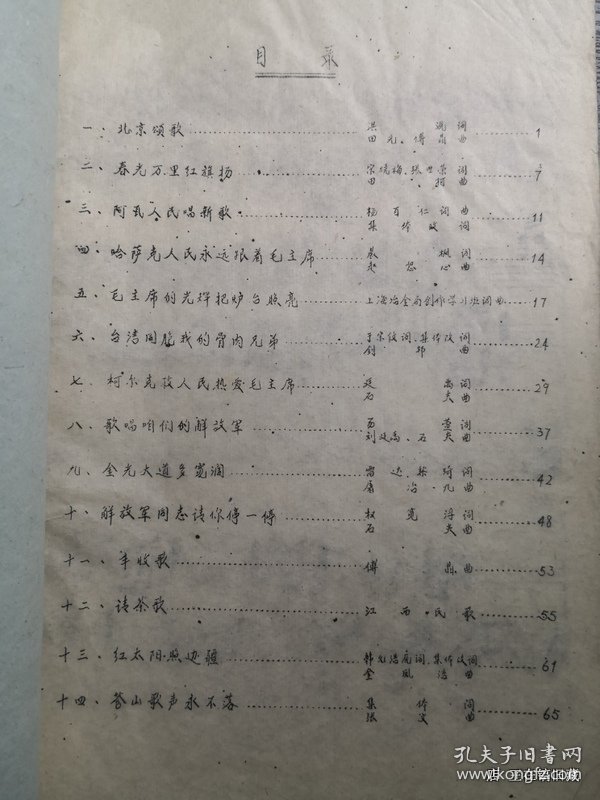 目录
一、北京颂歌 洪源词 田光、傅晶曲 1
二、春光万里红旗扬 宋绪梅、张世荣词 田柯曲 7
三、阿瓦人民唱新歌 杨百仁词曲 集体改词 11
四、哈萨克人民永远跟着毛主席 晨枫词 曲 14
五、毛主席的光辉把炉台照亮 上海冶金局创作学习班词曲 17
六、台湾同胞我的骨肉兄弟 于宗信词、集体改词 钊邦曲 24
七、柯尔克孜人民热爱毛主席 廷禹词 石夫曲 29
八、歌唱咱们的解放军 词 刘廷禹、石夫曲 37
九、金光大道多宽阔 词 曲 42
十、解放军同志请你停一停 权宽浮词 石夫曲 48
十一、丰收歌 傅晶曲 53
十二、请茶歌 江西民歌 55
十三、红太阳照边疆 韩允浩原词、集体改词 金凤浩曲 61
十四、苍山歌声永不落 集体词 张文曲 65
孔夫子旧书网
www.kongfz.com